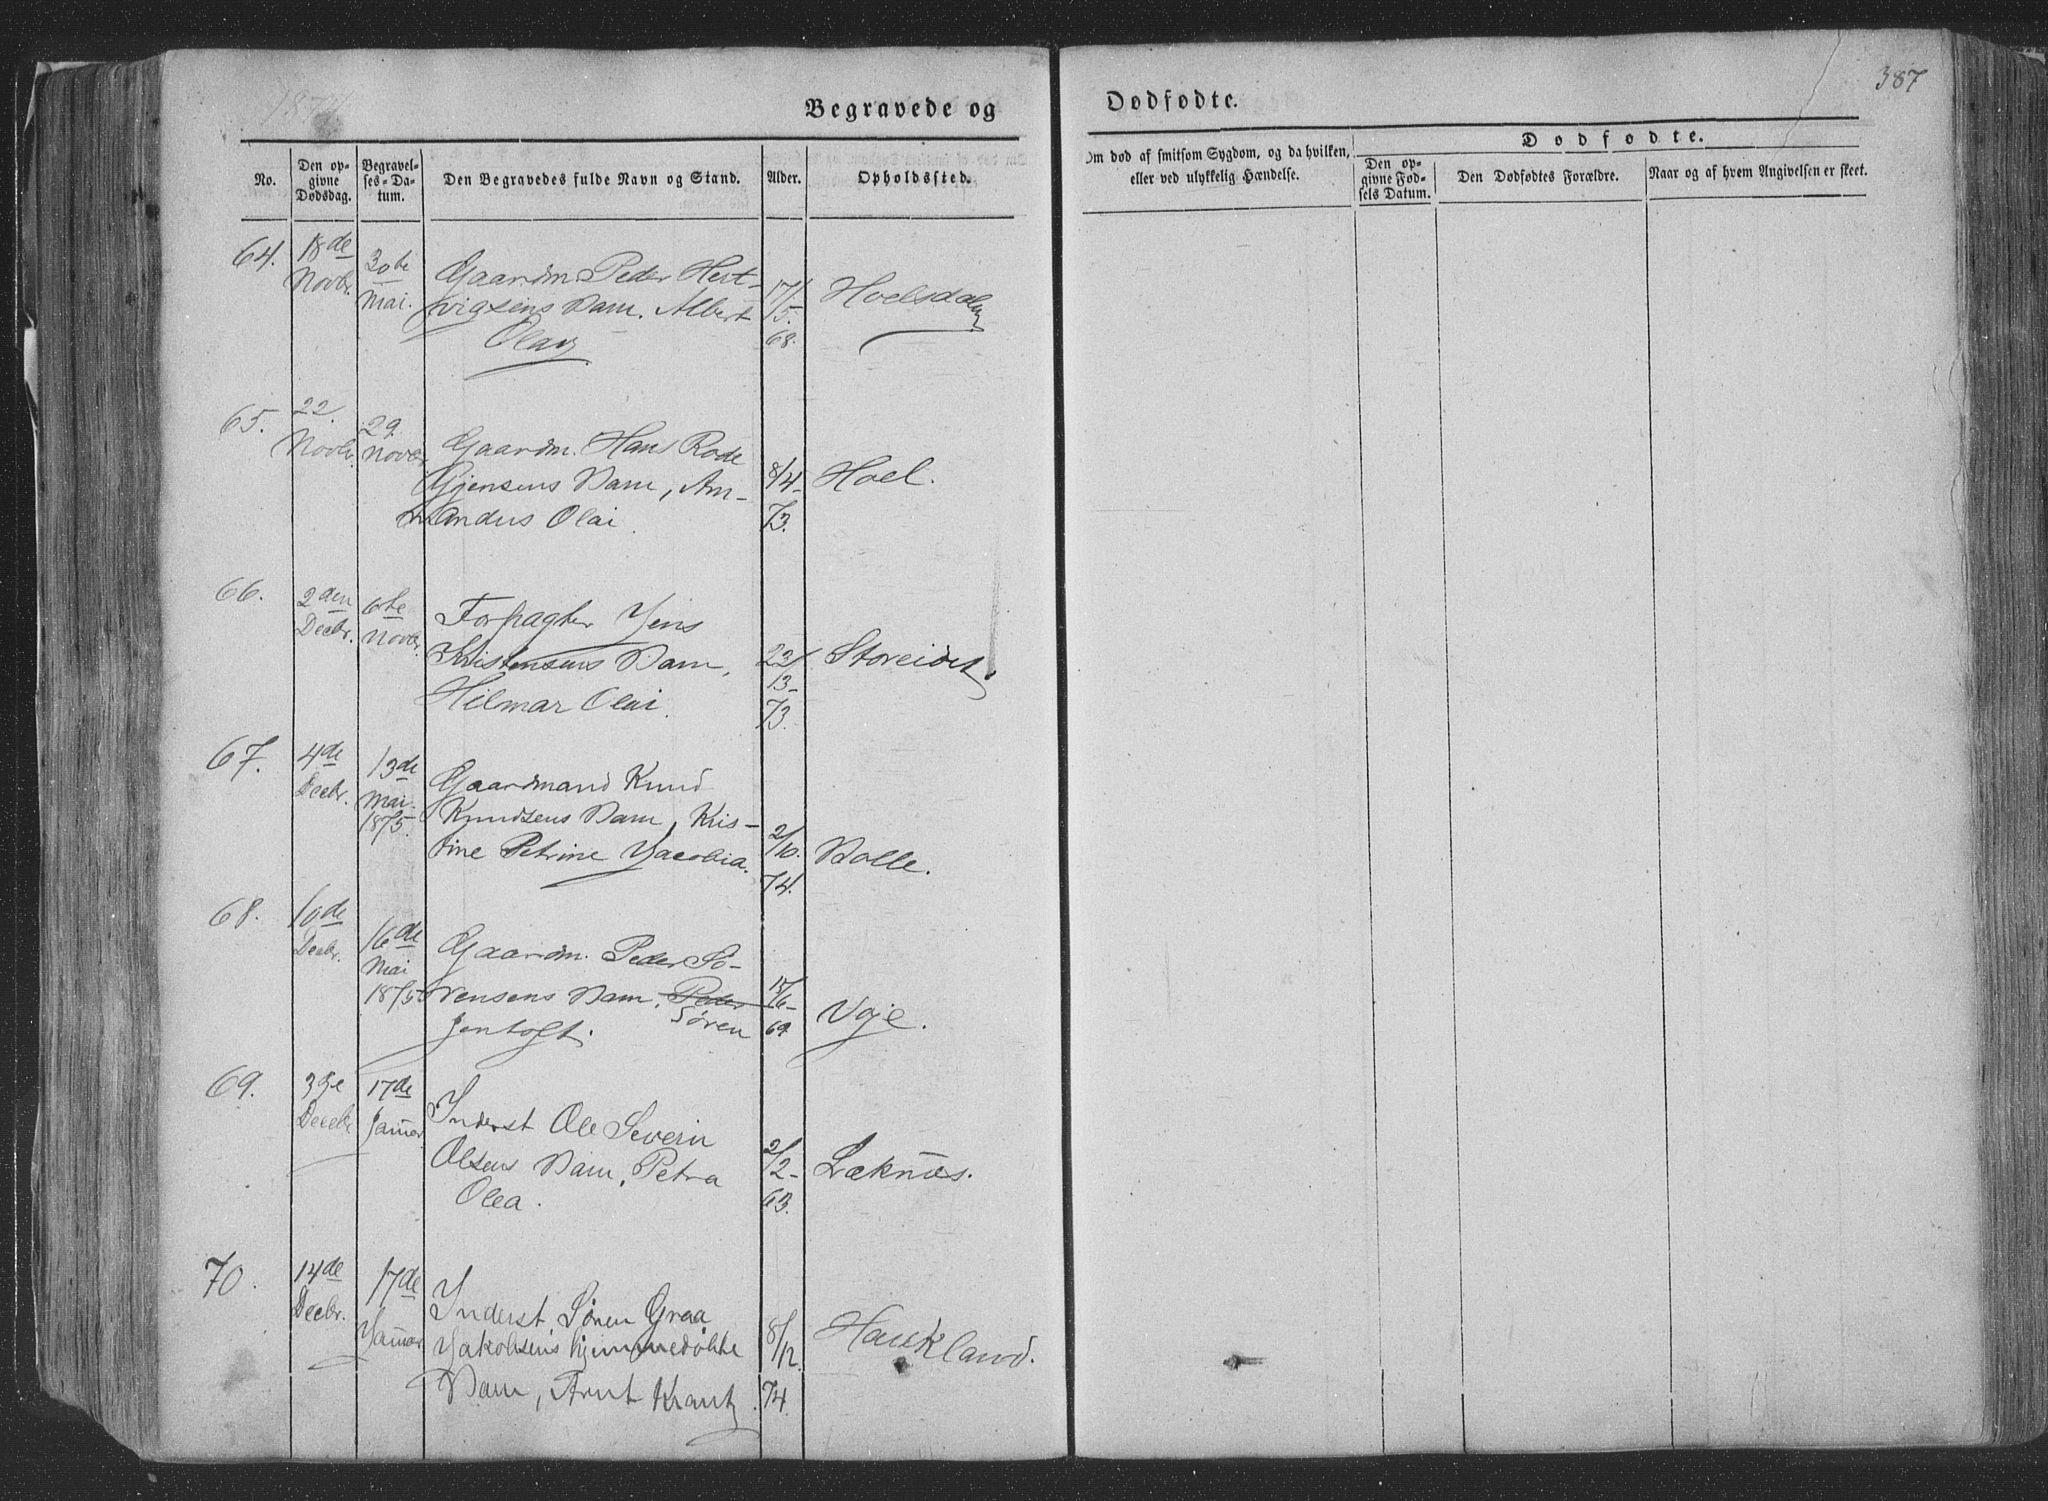 1874
Begravede og
Dødfødte.
387
No.
Den op-
givne
Dødsdag.
Begravel-
ses-Da-
tum.
Den Begravedes fulde Navn og Stand.
Alder.
Opholdssted.
Om død af smitsom Sygdom, og da hvilken,
eller ved ulykkelig Hændelse.
Dødfødte.
Den op-
givne Fød-
sels Datum.
Den Dødfødtes Forældre.
Naar og af hvem Angivelsen er skeet.
64.
18de
Novbr.
30te
Mai.
Gaardm Peder Hert-
vigsens Barn. Albert
Olai
17/
5.
68.
Hoelsdalen
65.
22
Novbr.
29.
Novbr
Gaardm. Hans Rode
Gjensens Barn, Am-
andus Olai
8/4-
73.
Hoel.
66.
2den
Decbr.
6te
Novbr.
Forpagter Jens
Kristensens Barn,
Hilmar Olai.
22/
13-
73.
Storeidet
67.
4de
Decbr.
13de
Mai.
1875.
Gaardmand Knud
Knudsens Barn, Kris-
tine Petrine Jacobia.
2/10.
74.
Bolle.
68.
10de
Decbr.
16de
Mai
1875
Gaardm. Peder Sø-
rensens Barn, Peder
Søren
Jentoft.
17/6-
69
Voje.
69.
3die
Decebr
17de
Januar
Inderst Ole Severin
Olsens Barn, Petra
Olea.
2/2-
63.
Læknæs.
70.
14de
Decbr.
17de
Januar
Inderst Søren Graa
Jakobsens hjemmedøbte
Barn, Arnt Krantz.
8/12.
74.
Haukland.